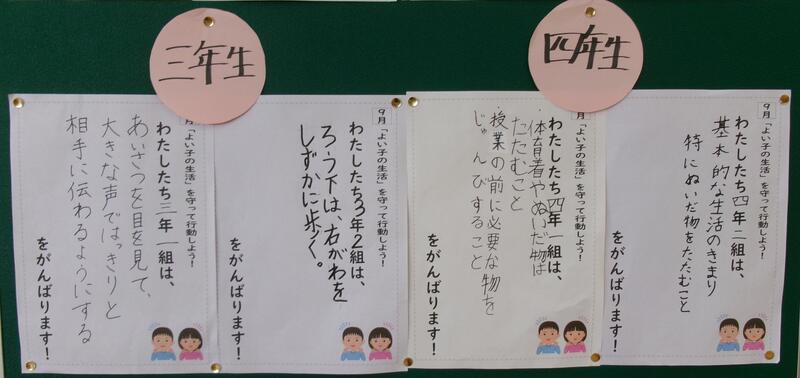 三年生
四年生
9月「よい子の生活」を守って行動しよう!
わたしたち四年二組は、
基本的な生活のきまり
特にぬいだ物をたたむこと
をがんばります!
月「よい子の生活」を守って行動しよう!
わたしたち四年一組は、
・体育着やぬいだ物は
たたむこと
・授業の前に必要な物を
じゅんびすること
をがんばります!
9月「よい子の生活」を守って行動しよう!
わたしたち3年2組は、
ろう下は、右がわを
しずかに歩く。
をがんばります!
月「よい子の生活」を守って行動しよう!
わたしたち三年一組は、
あいさつを目を見て、
大きな声ではっきりと
相手に伝わるようにする
をがんばります!